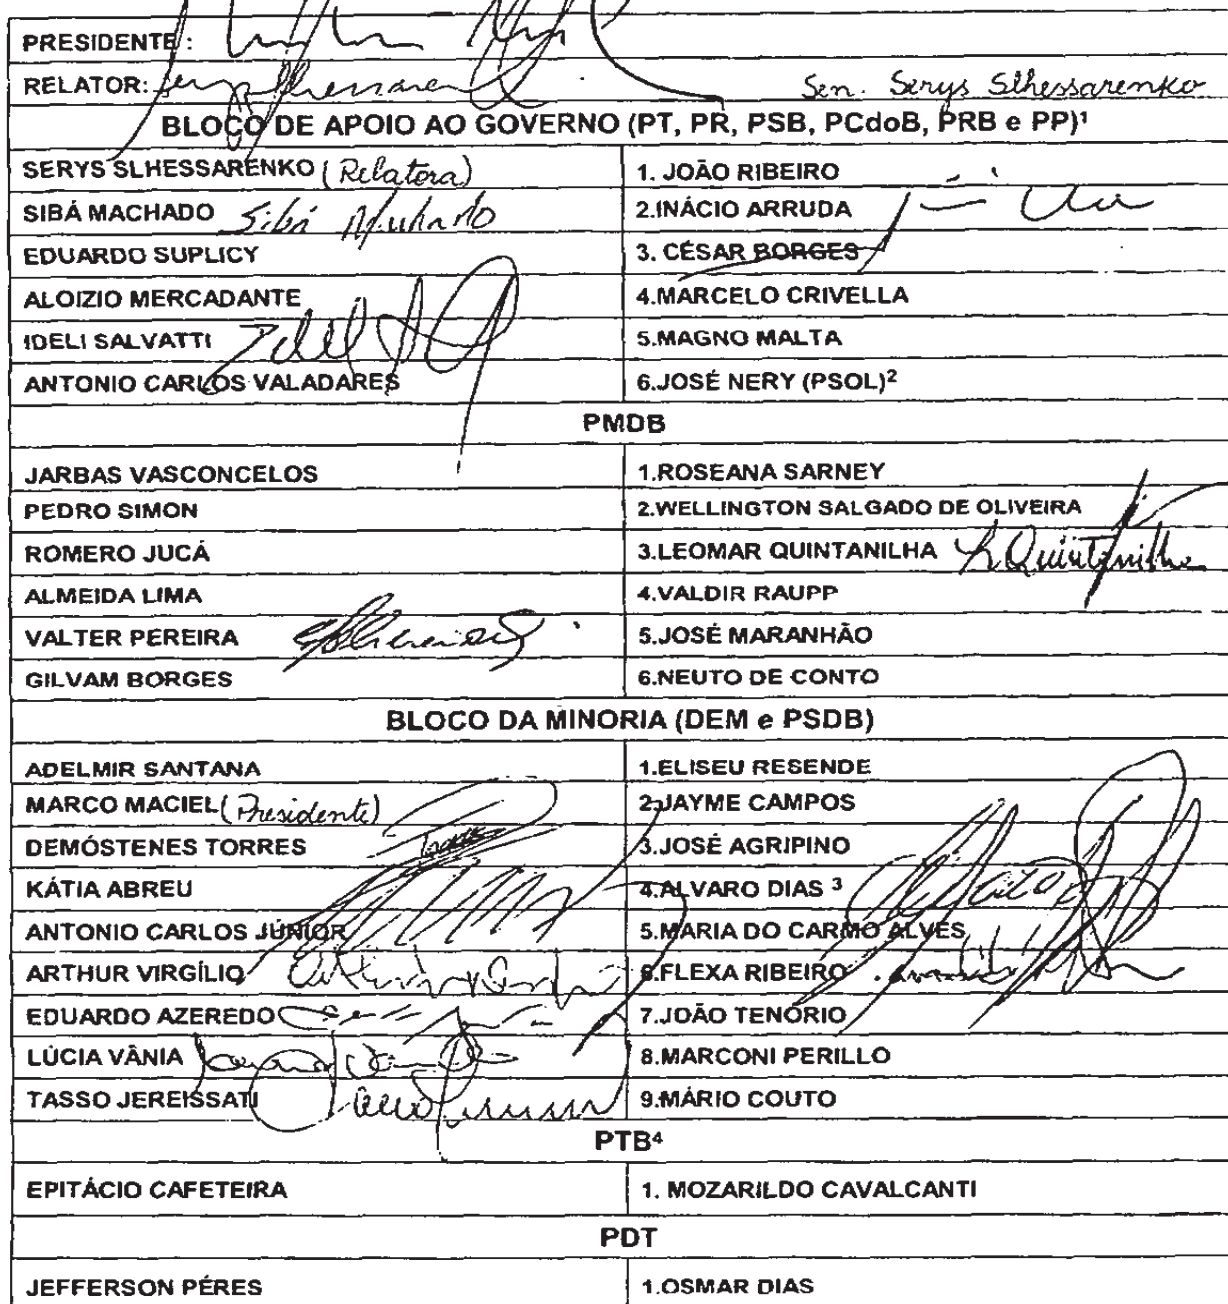 PRESIDENTE :
RELATOR: Serys Slhessarenko Sen. Serys Slhessarenko
BLOCO DE APOIO AO GOVERNO (PT, PR, PSB, PCdoB, PRB e PP)¹
SERYS SLHESSARENKO (Relatora) 1. JOÃO RIBEIRO
SIBÁ MACHADO Sibá Machado 2.INÁCIO ARRUDA
EDUARDO SUPLICY 3. CÉSAR BORGES
ALOIZIO MERCADANTE 4.MARCELO CRIVELLA
IDELI SALVATTI 5.MAGNO MALTA
ANTONIO CARLOS VALADARES 6.JOSÉ NERY (PSOL)²
PMDB
JARBAS VASCONCELOS 1.ROSEANA SARNEY
PEDRO SIMON 2.WELLINGTON SALGADO DE OLIVEIRA
ROMERO JUCÁ 3.LEOMAR QUINTANILHA L Quintanilha
ALMEIDA LIMA 4.VALDIR RAUPP
VALTER PEREIRA 5.JOSÉ MARANHÃO
GILVAM BORGES 6.NEUTO DE CONTO
BLOCO DA MINORIA (DEM e PSDB)
ADELMIR SANTANA 1.ELISEU RESENDE
MARCO MACIEL (Presidente) 2.JAYME CAMPOS
DEMÓSTENES TORRES 3.JOSÉ AGRIPINO
KÁTIA ABREU 4.ALVARO DIAS ³
ANTONIO CARLOS JÚNIOR 5.MARIA DO CARMO ALVES
ARTHUR VIRGÍLIO 6.FLEXA RIBEIRO
EDUARDO AZEREDO 7.JOÃO TENÓRIO
LÚCIA VÂNIA 8.MARCONI PERILLO
TASSO JEREISSATI 9.MÁRIO COUTO
PTB⁴
EPITÁCIO CAFETEIRA 1. MOZARILDO CAVALCANTI
PDT
JEFFERSON PÉRES 1.OSMAR DIAS